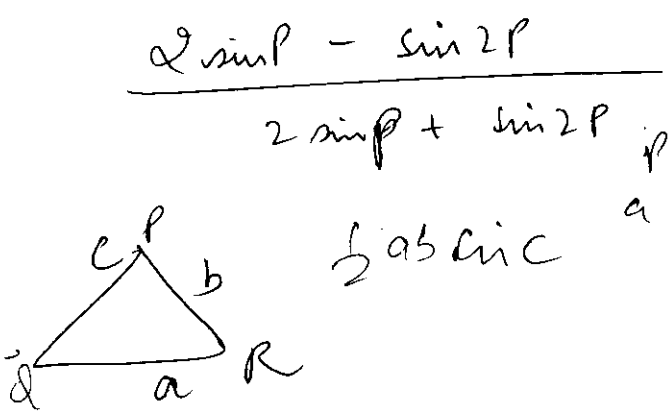 2 sinP - sin2P
2 sinp + sin2P
P
a
C P
b
1/2 ab sin C
Q a R